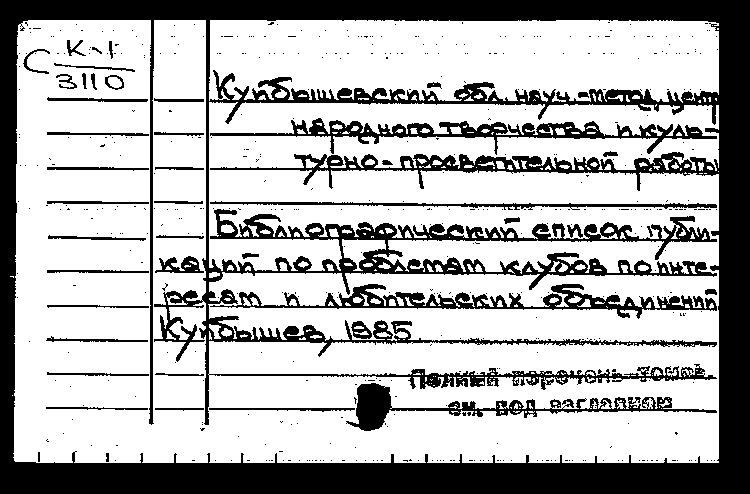 С К-1
3110
Куйбышевский обл. науч.-метод. центр
народного творчества и куль-
турно-просветительной работы
Библиографический список публи-
каций по проблемам клубов по инте-
ресам и любительских объединений
Куйбышев, 1985
Полный перечень томов
см. под заглавием